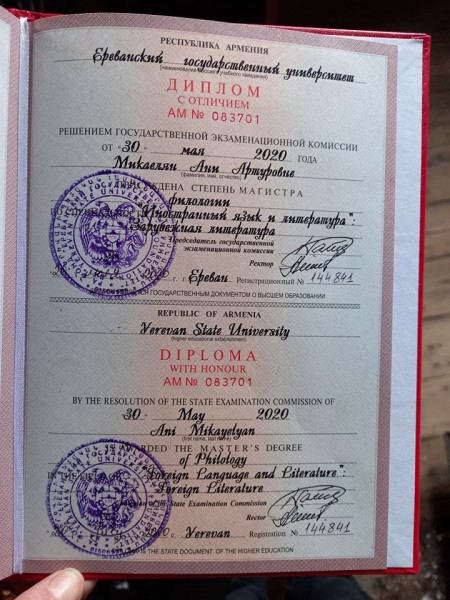 РЕСПУБЛИКА АРМЕНИЯ
Ереванский государственный университет
ДИПЛОМ
С ОТЛИЧИЕМ
АМ № 083701
РЕШЕНИЕМ ГОСУДАРСТВЕННОЙ ЭКЗАМЕНАЦИОННОЙ КОМИССИИ
ОТ «30» мая 2020 ГОДА
Микаелян Ани Артуровне
(фамилия, имя, отчество)
СТЕПЕНЬ МАГИСТРА
филологии
"Иностранный язык и литература":
Зарубежная литература
Председатель государственной
экзаменационной комиссии
Ректор
г. Ереван Регистрационный № 144841
ГОСУДАРСТВЕННЫМ ДОКУМЕНТОМ О ВЫСШЕМ ОБРАЗОВАНИИ
REPUBLIC OF ARMENIA
Yerevan State University
(higher educational establishment)
DIPLOMA
WITH HONOUR
AM № 083701
BY THE RESOLUTION OF THE STATE EXAMINATION COMMISSION OF
30 May 2020
Ani Mikayelyan
(first name, last name)
AWARDED THE MASTER'S DEGREE
of Philology
"Foreign Language and Literature":
Foreign Literature
State Examination Commission
Rector
Yerevan Registration № 144841
IS THE STATE DOCUMENT OF THE HIGHER EDUCATION